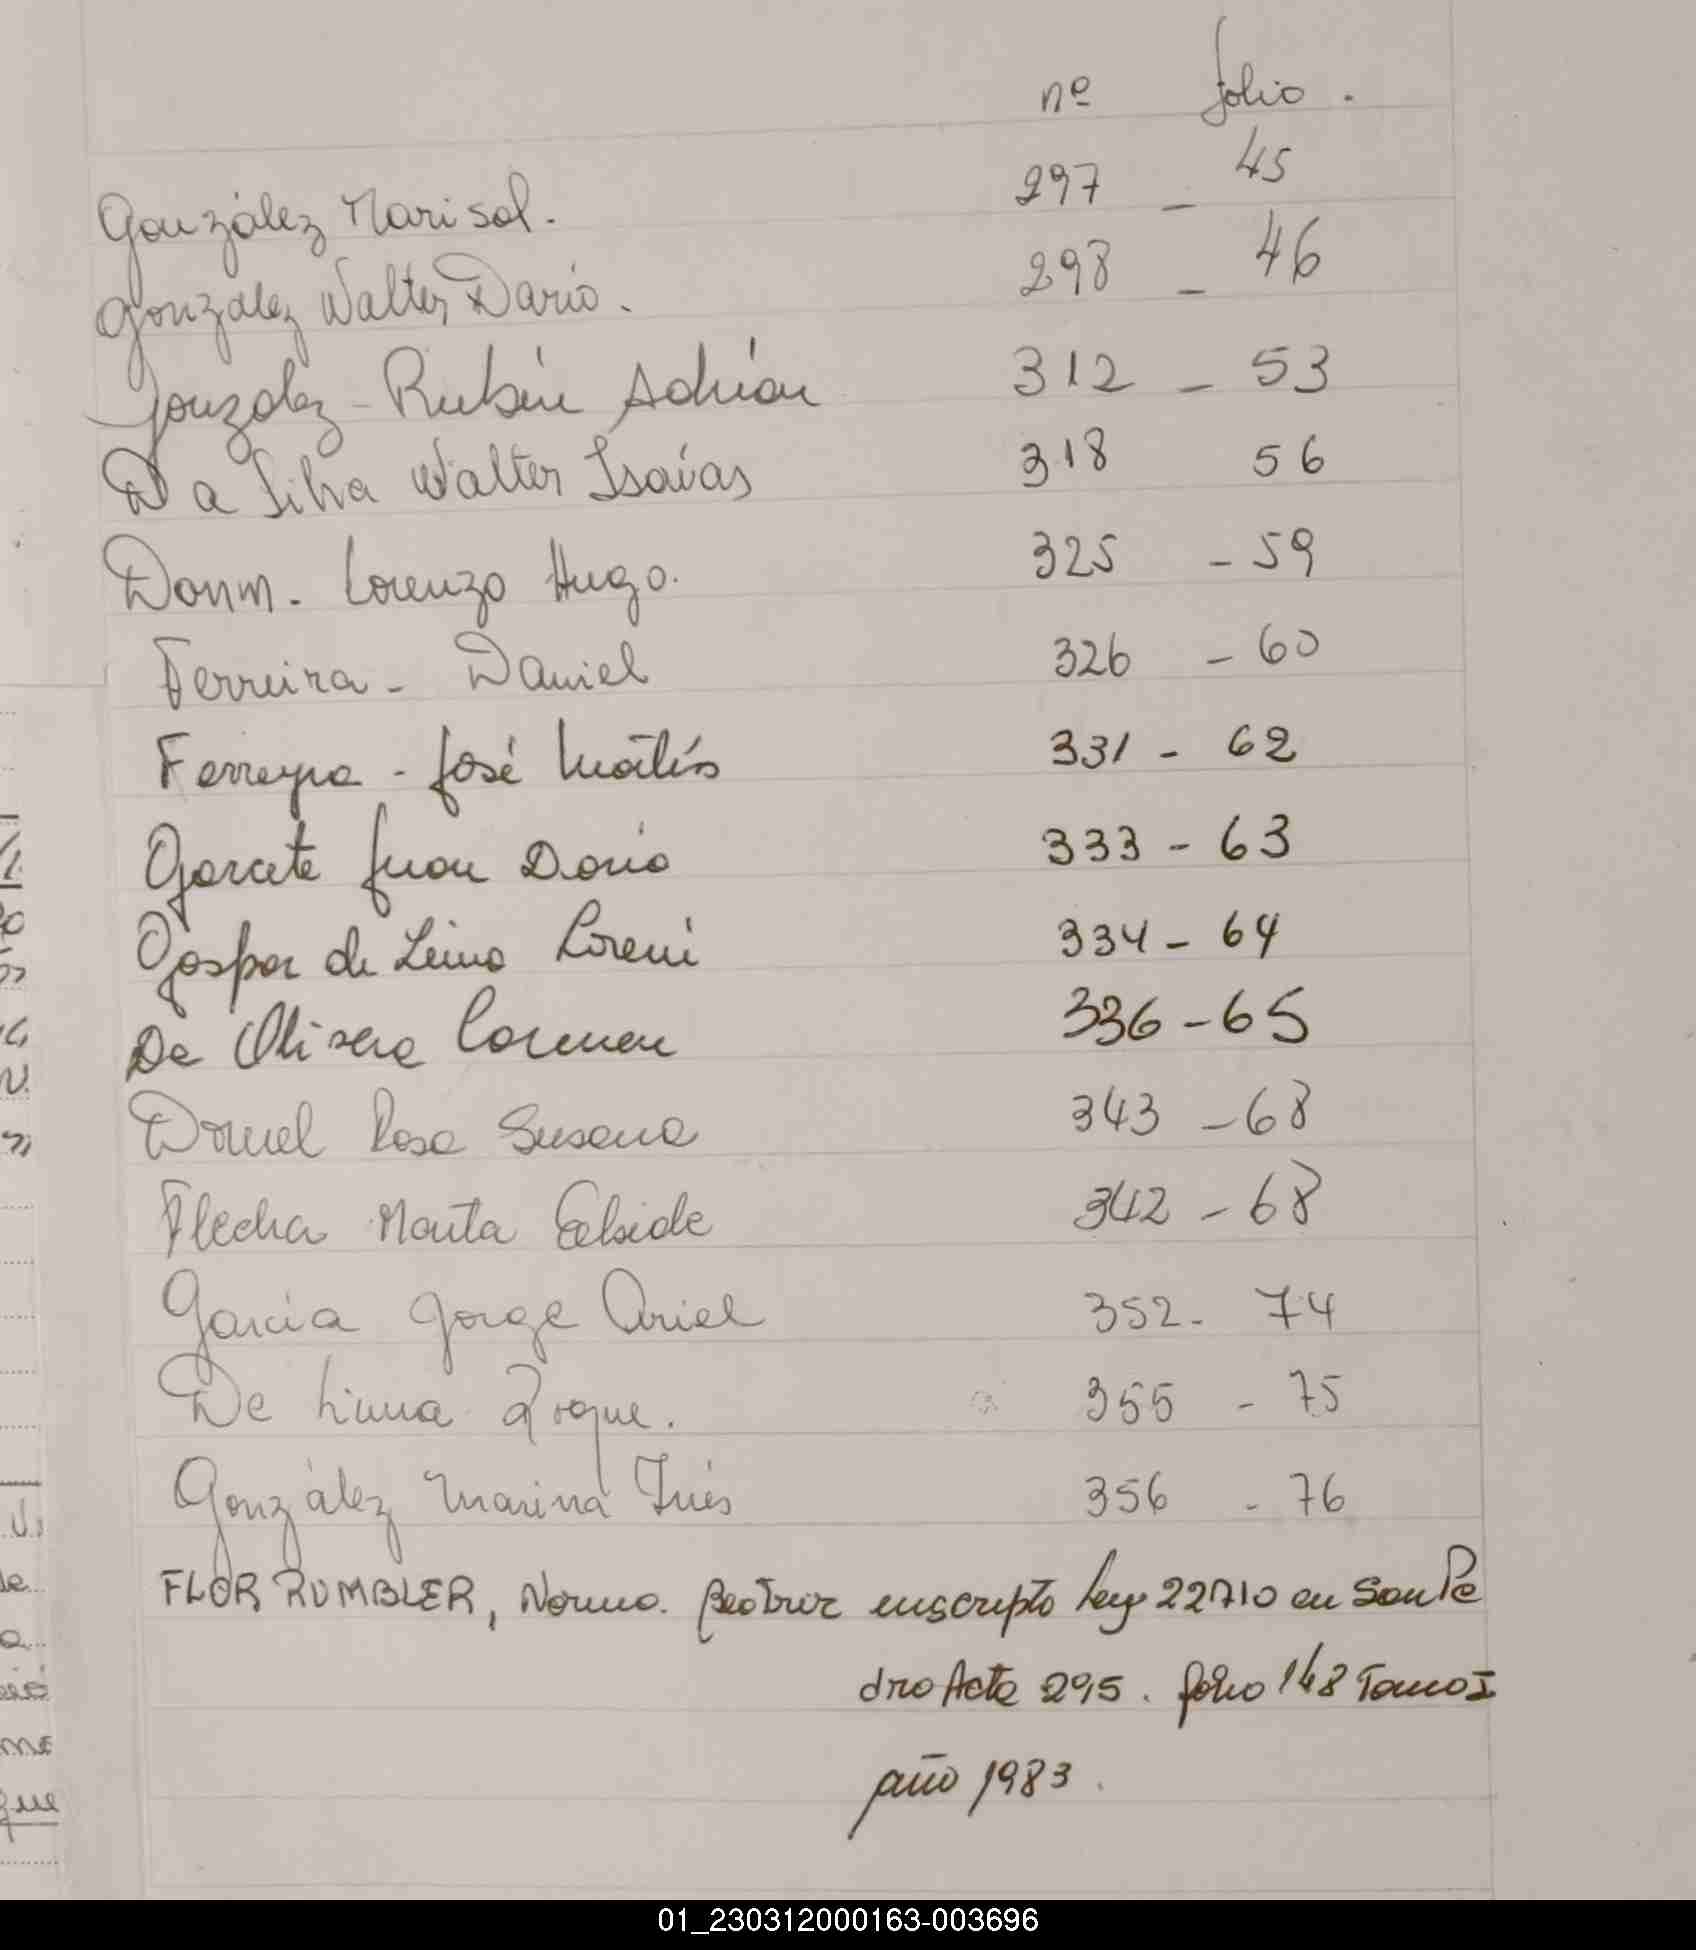 nº folio.
González Marisol. 297 - 45
González Walter Darío. 298 - 46
González - Rubén Adrián 312 - 53
Da Silva Walter Isaías 318 56
Donm. Lorenzo Hugo. 325 - 59
Ferreira - Daniel 326 - 60
Ferreyra - José Matías 331 - 62
Garcete Juan Dario 333 - 63
Gaspar de Lima Loreni 334 - 64
De Olivera Carmen 336 - 65
Rosa Susana 343 - 68
Flecha Marta 342 - 68
García Jorge Ariel 352 - 74
De Lima Roque. 355 - 75
González Marina Inés 356 - 76
FLOR RUMBLER, Norma. Beatriz inscripto ley 22710 en San Pe
dro Acta 295. folio 148 Tomo I
año 1983.
01_230312000163-003696